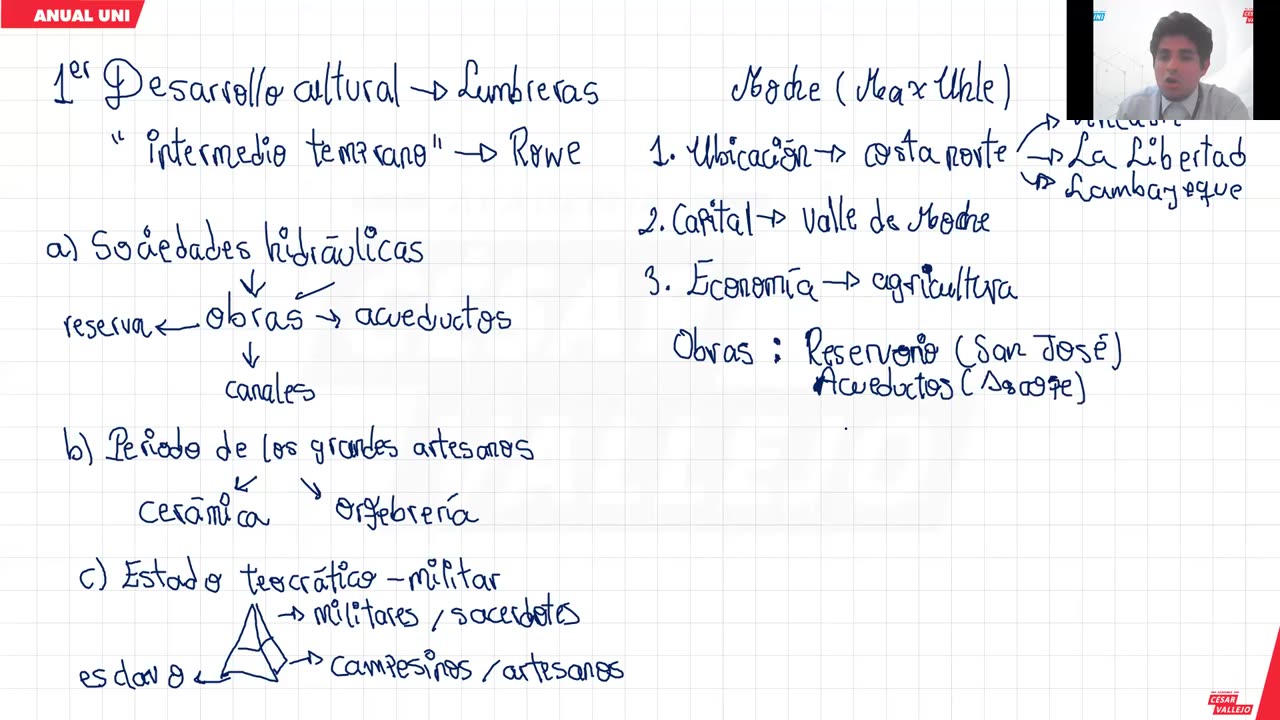 ANUAL UNI
1er Desarrollo cultural → Lumbreras
"intermedio temprano" → Rowe
a) Sociedades hidráulicas
reserva ← obras → acueductos
canales
b) Periodo de los grandes artesanos
cerámica orfebrería
c) Estado teocrático - militar
→ militares / sacerdotes
esclavo ← → campesinos / artesanos
Moche (Max Uhle)
1. Ubicación → costa norte → La Libertad
→ Lambayeque
2. Capital → Valle de Moche
3. Economía → agricultura
Obras : Reservorio (San José)
Acueductos (Ascope)
CESAR
VALLEJO